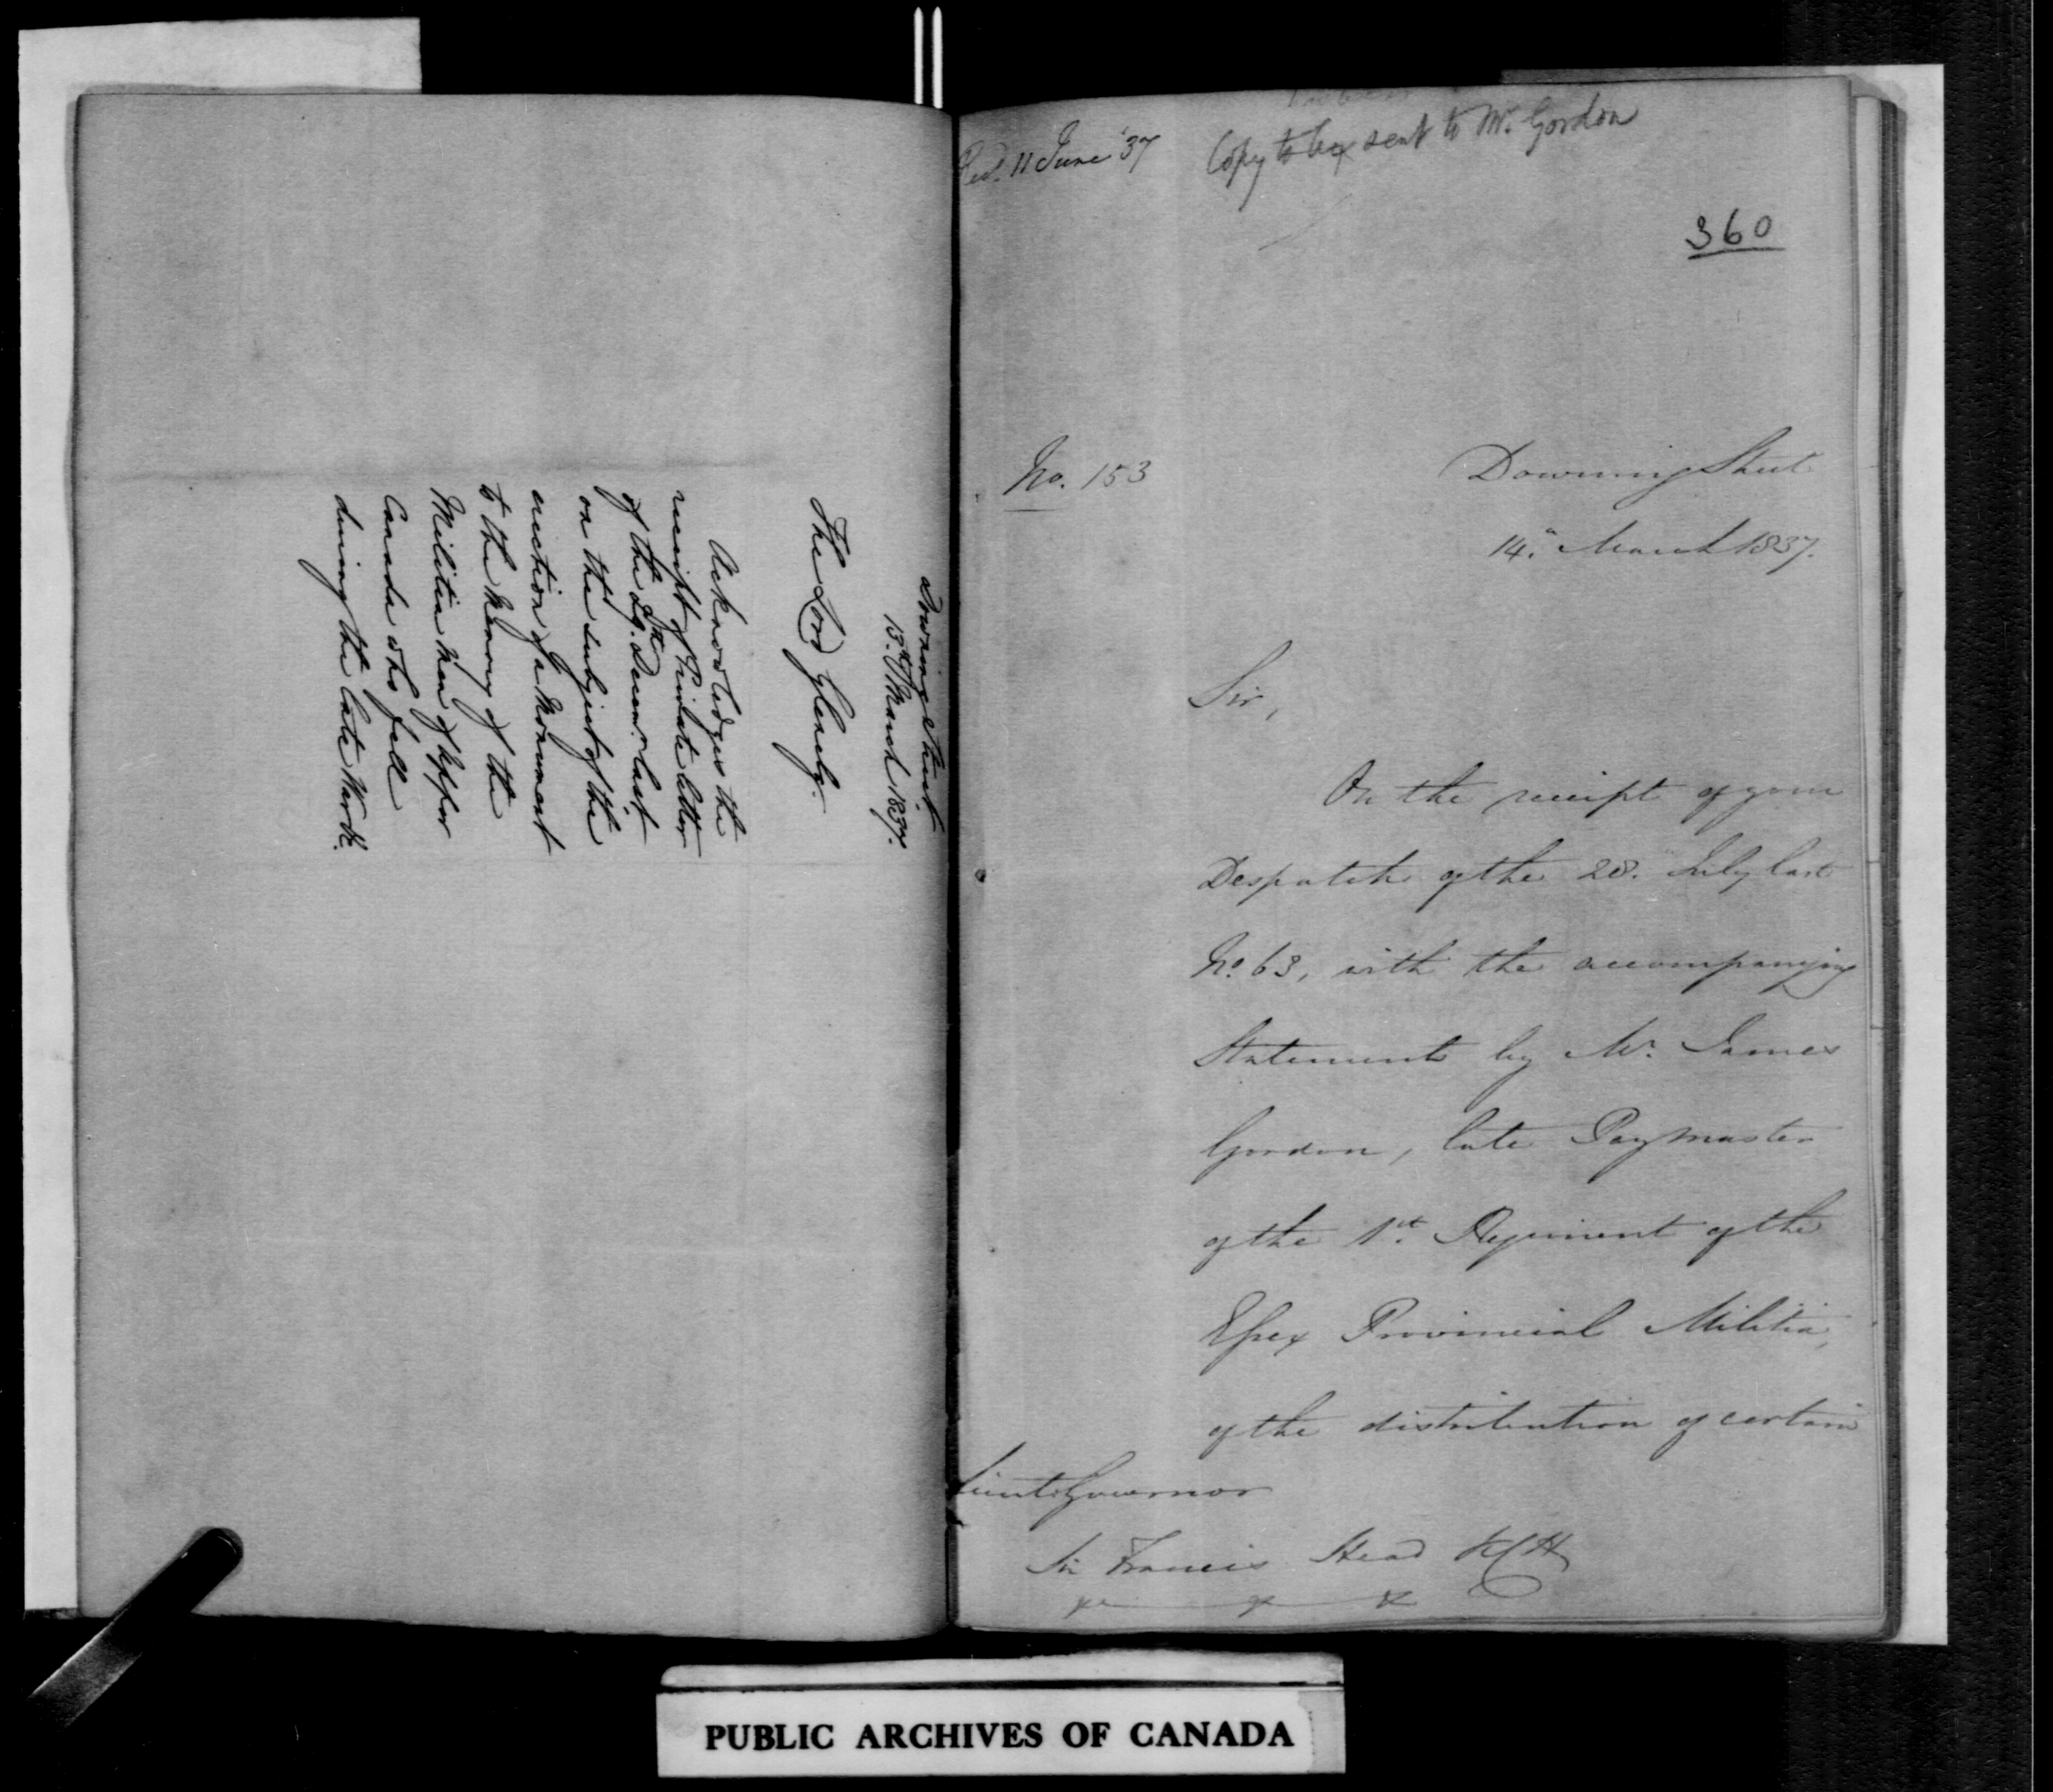 Downing Street
13th March 1837.
The Lord Glenelg.
Acknowledges the
receipt of Private letter
of the 29th Decemr. last
on the subject of the
erection of a Monument
to the Memory of the
Militia Men of Upper
Canada who fell
during the late War &c.
Recd. 11 June '37
Copy to be sent to Mr. Gordon
360
No. 153
Downing Street
14. March 1837.
Sir,
On the receipt of your
Despatch of the 28. July last
No. 63, with the accompanying
Statement by Mr. James
Gordon, late Paymaster
of the 1st. Regiment of the
Essex Provincial Militia,
of the distribution of certain
Lieut. Governor
Sir Francis Head KCH
&c &c &c
PUBLIC ARCHIVES OF CANADA